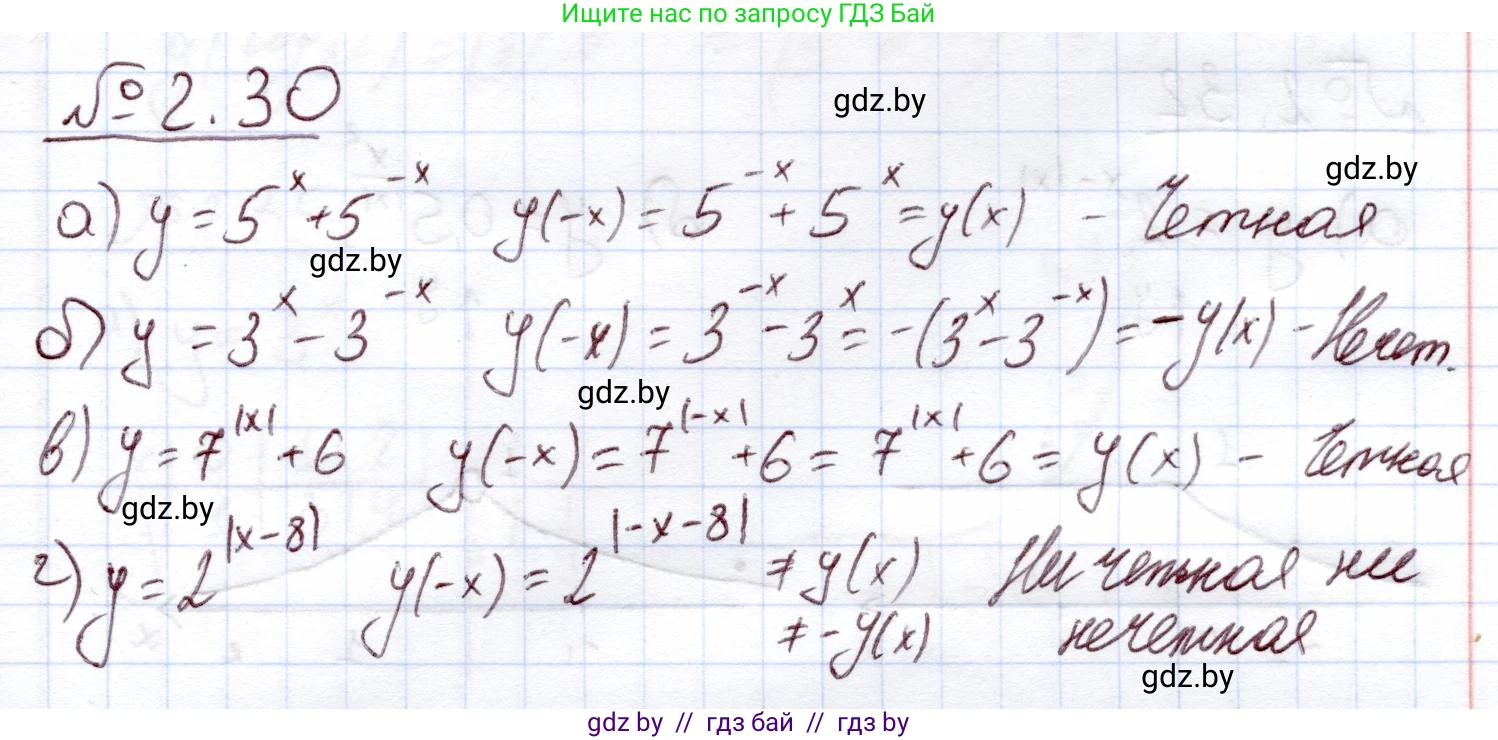 Ищите нас по запросу ГДЗ Бай
№ 2.30
gdz.by
gdz.by
а) y = 5^x + 5^{-x} y(-x) = 5^{-x} + 5^x = y(x) - Четная
gdz.by
б) y = 3^x - 3^{-x} y(-x) = 3^{-x} - 3^x = -(3^x - 3^{-x}) = -y(x) - Нечет.
gdz.by
в) y = 7^{|x|} + 6 y(-x) = 7^{|-x|} + 6 = 7^{|x|} + 6 = y(x) - Четная
gdz.by
г) y = 2^{|x-8|} y(-x) = 2^{|-x-8|} ≠ y(x) Ни четная ни
≠ -y(x) нечетная
gdz.by
gdz by // гдз бай // гдз by